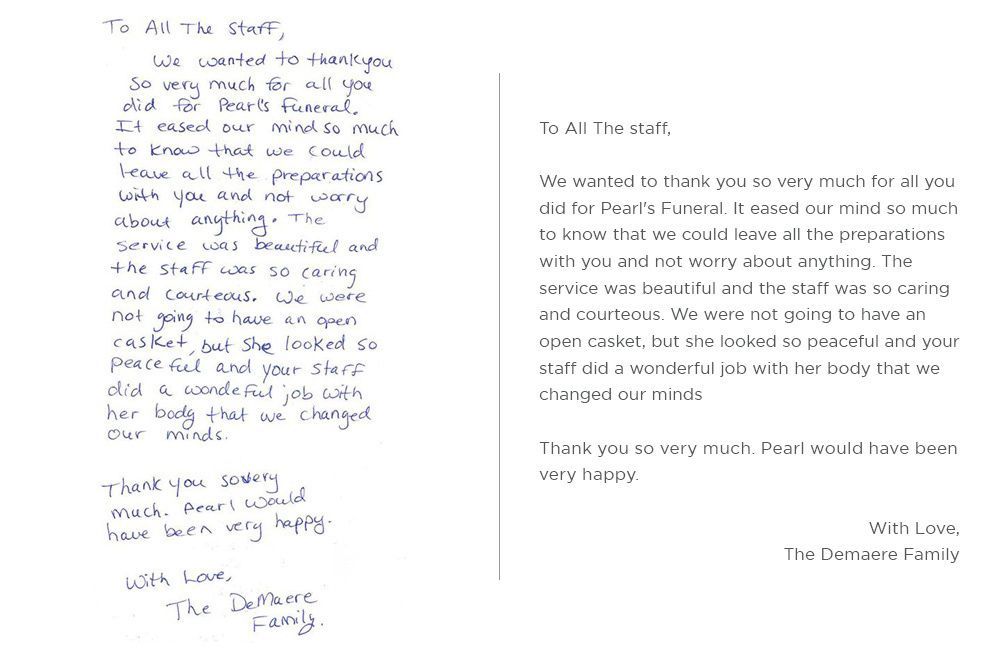 To All The Staff,
We wanted to thankyou
so very much for all you
did for Pearl's Funeral.
It eased our mind so much
to know that we could
leave all the preparations
with you and not worry
about anything. The
service was beautiful and
the staff was so caring
and courteous. We were
not going to have an open
casket, but she looked so
peaceful and your staff
did a wondeful job with
her body that we changed
our minds.
Thank you so very
much. Pearl would
have been very happy.
With Love,
The DeMaere
Family.
To All The staff,
We wanted to thank you so very much for all you
did for Pearl's Funeral. It eased our mind so much
to know that we could leave all the preparations
with you and not worry about anything. The
service was beautiful and the staff was so caring
and courteous. We were not going to have an
open casket, but she looked so peaceful and your
staff did a wonderful job with her body that we
changed our minds
Thank you so very much. Pearl would have been
very happy.
With Love,
The Demaere Family